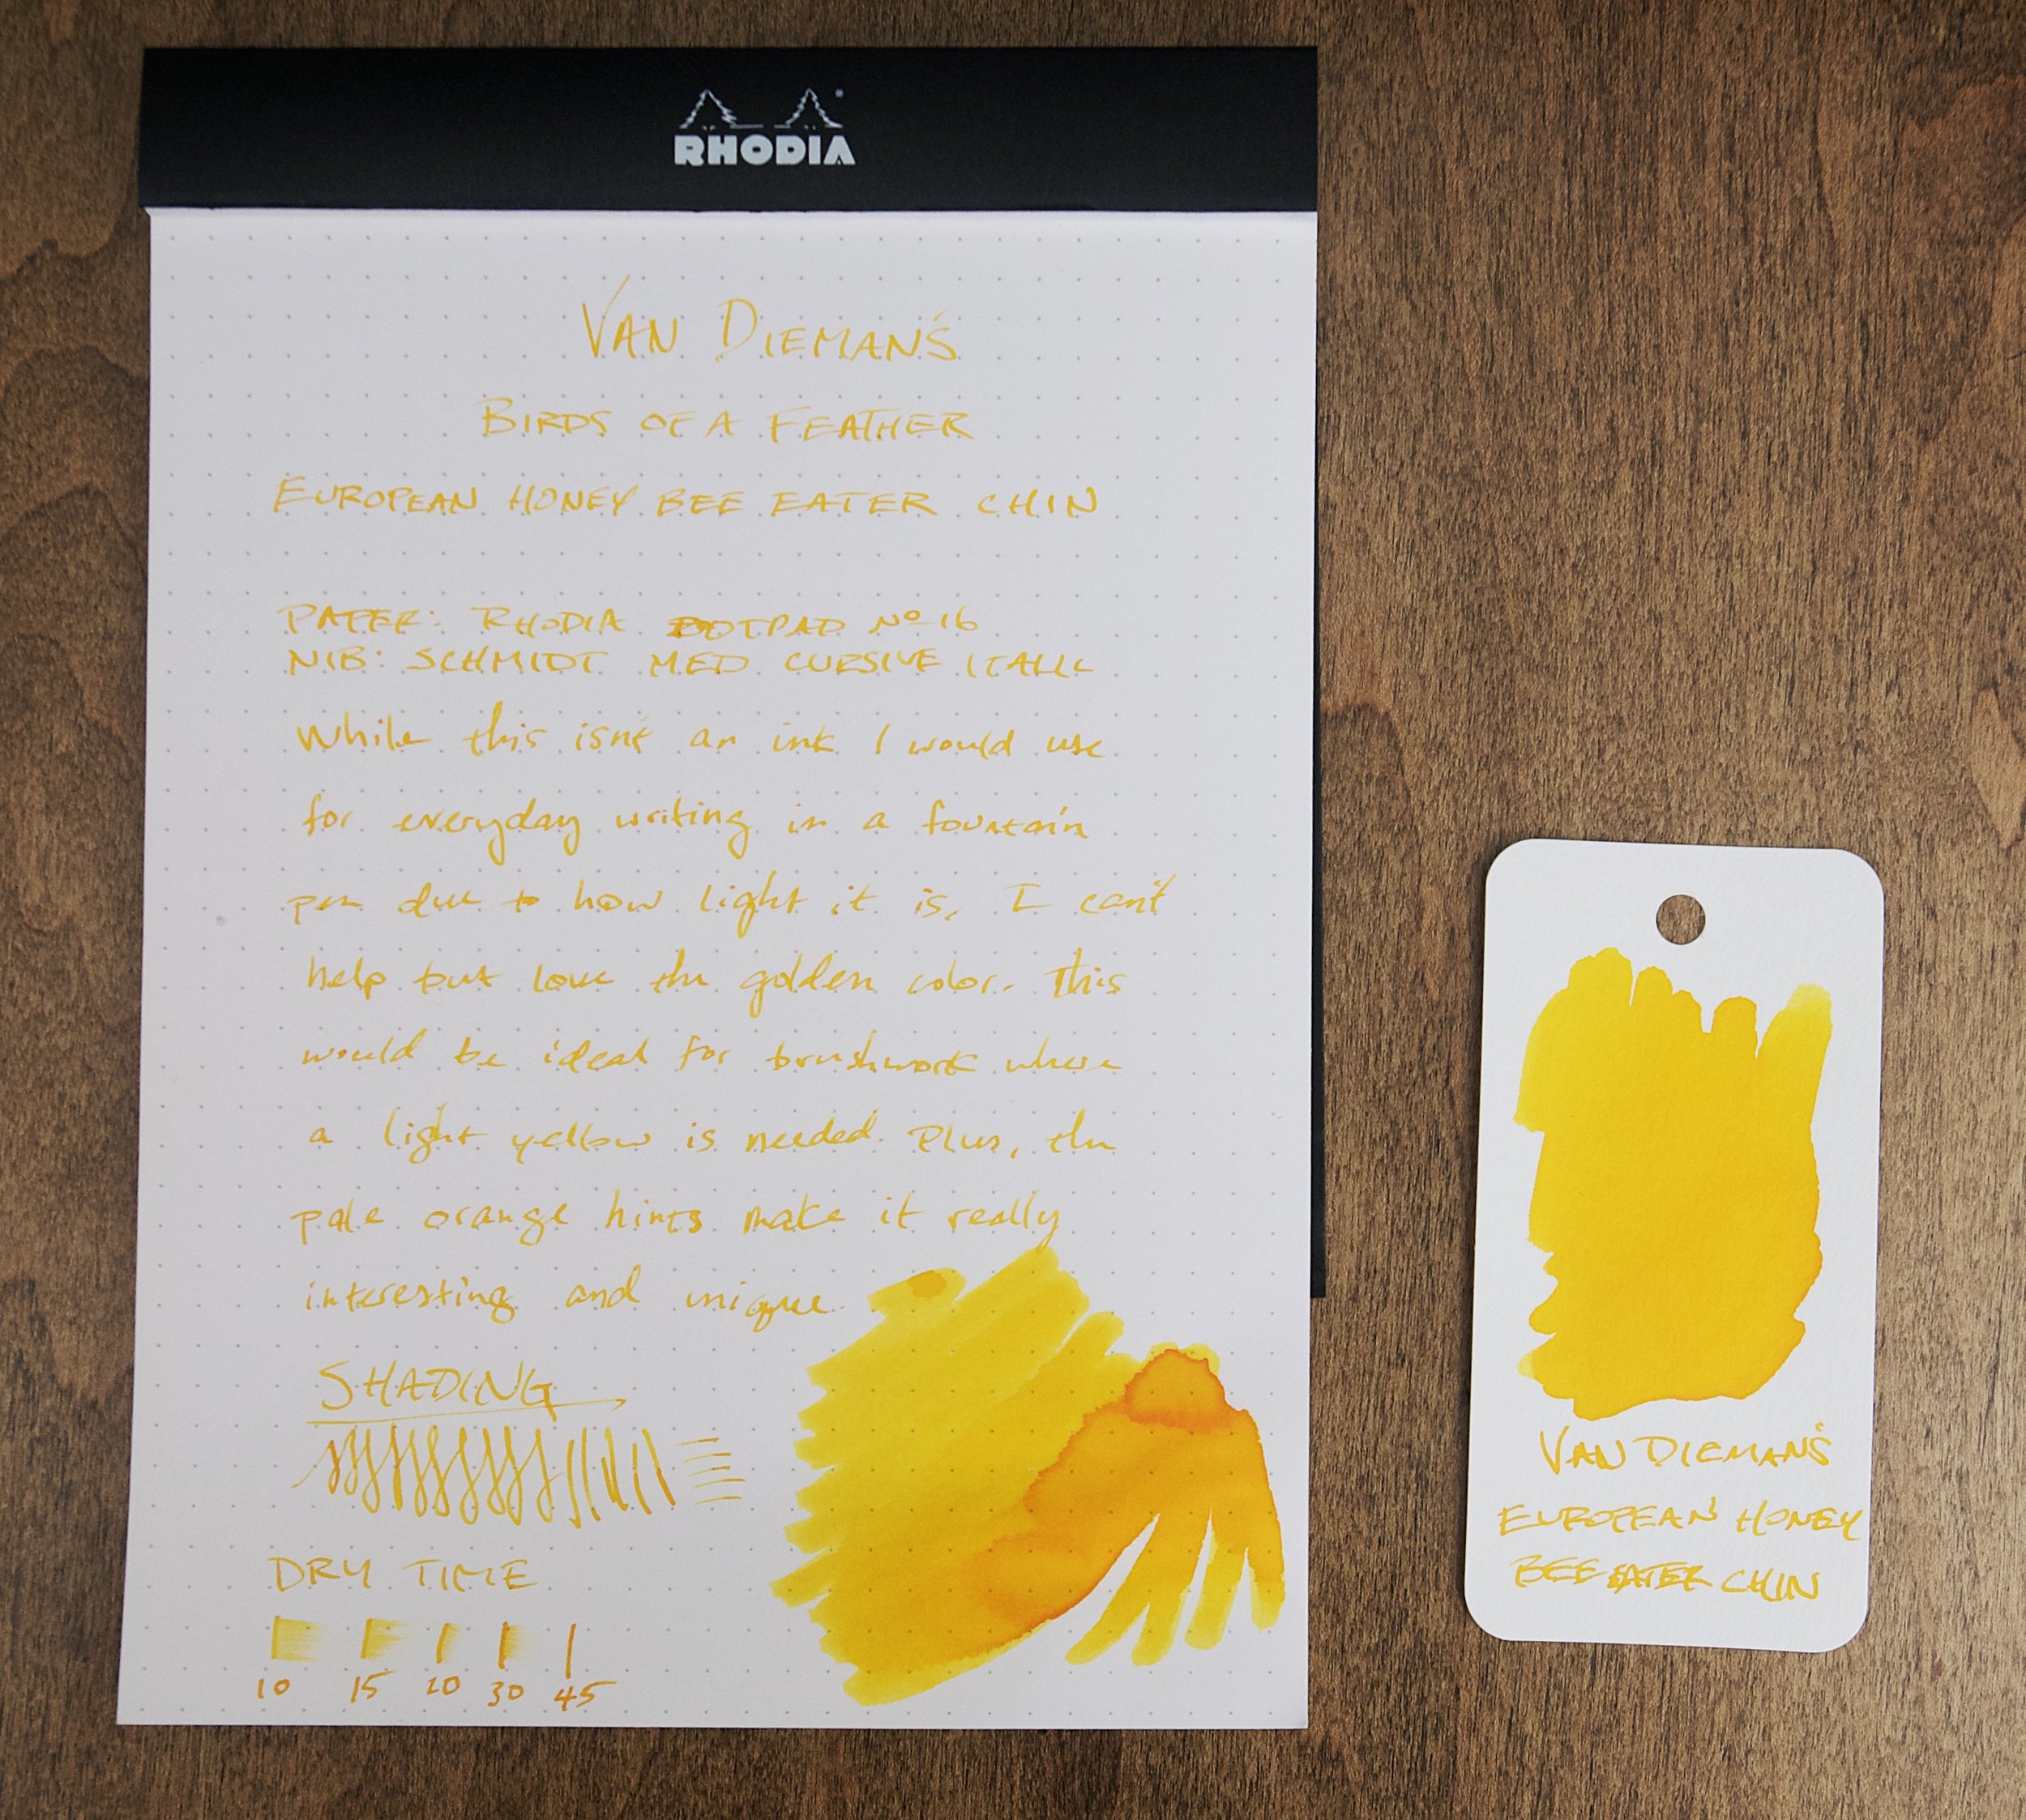 RHODIA
VAN DIEMAN'S
BIRDS OF A FEATHER
EUROPEAN HONEY BEE EATER CHIN
PAPER: RHODIA DOTPAD Nº 16
NIB: SCHMIDT MED CURSIVE ITALIC
While this isn't an ink I would use
for everyday writing in a fountain
pen due to how light it is, I can't
help but love the golden color. This
would be ideal for brushwork where
a light yellow is needed. Plus, the
pale orange hints make it really
interesting and unique.
SHADING
DRY TIME
10 15 20 30 45
VAN DIEMAN'S
EUROPEAN HONEY
BEE EATER CHIN